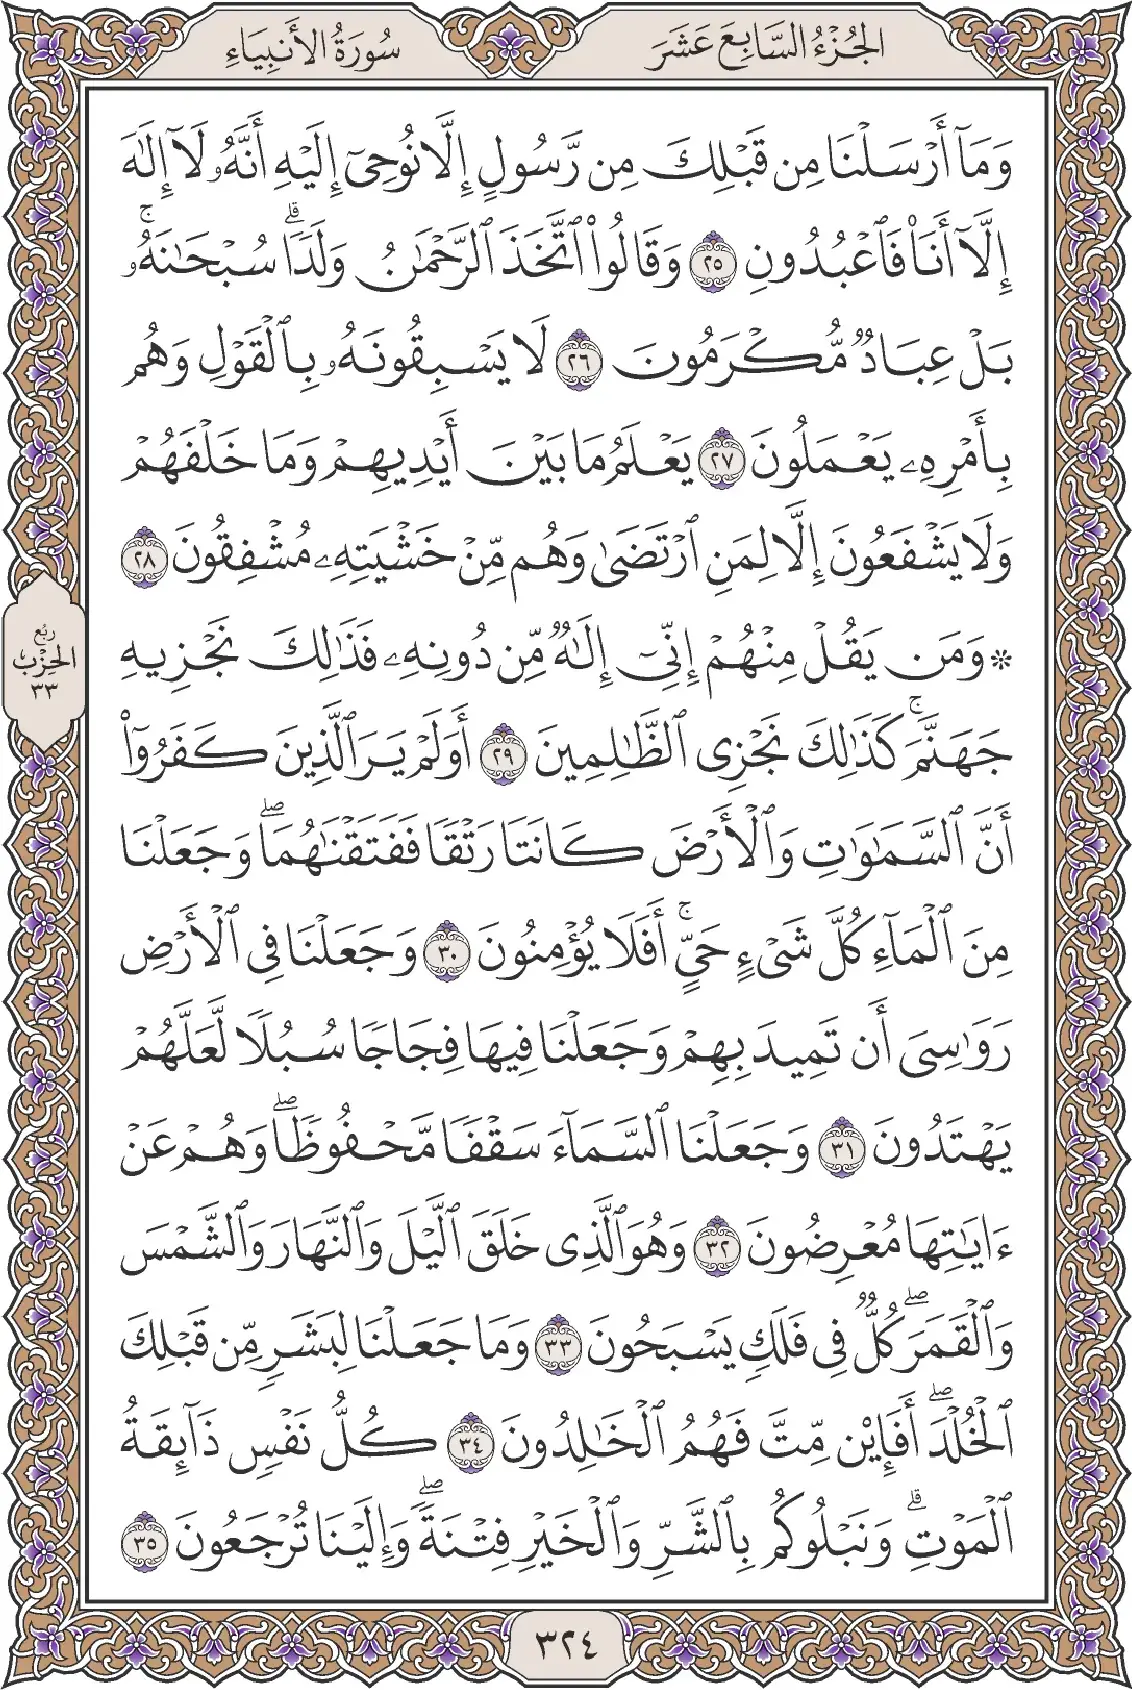 الجُزْءُ السَّابِعَ عَشَرَ
سُورَةُ الأَنبِيَاءِ
وَمَآ أَرْسَلْنَا مِن قَبْلِكَ مِن رَّسُولٍ إِلَّا نُوحِىٓ إِلَيْهِ أَنَّهُۥ لَآ إِلَٰهَ
إِلَّآ أَنَا۠ فَٱعْبُدُونِ ٢٥ وَقَالُوا۟ ٱتَّخَذَ ٱلرَّحْمَٰنُ وَلَدًا ۗ سُبْحَٰنَهُۥ ۚ
بَلْ عِبَادٌ مُّكْرَمُونَ ٢٦ لَا يَسْبِقُونَهُۥ بِٱلْقَوْلِ وَهُم
بِأَمْرِهِۦ يَعْمَلُونَ ٢٧ يَعْلَمُ مَا بَيْنَ أَيْدِيهِمْ وَمَا خَلْفَهُمْ
وَلَا يَشْفَعُونَ إِلَّا لِمَنِ ٱرْتَضَىٰ وَهُم مِّنْ خَشْيَتِهِۦ مُشْفِقُونَ ٢٨
۞ وَمَن يَقُلْ مِنْهُمْ إِنِّىٓ إِلَٰهٌ مِّن دُونِهِۦ فَذَٰلِكَ نَجْزِيهِ
جَهَنَّمَ ۚ كَذَٰلِكَ نَجْزِى ٱلظَّٰلِمِينَ ٢٩ أَوَلَمْ يَرَ ٱلَّذِينَ كَفَرُوٓا۟
أَنَّ ٱلسَّمَٰوَٰتِ وَٱلْأَرْضَ كَانَتَا رَتْقًا فَفَتَقْنَٰهُمَا ۖ وَجَعَلْنَا
مِنَ ٱلْمَآءِ كُلَّ شَىْءٍ حَىٍّ ۚ أَفَلَا يُؤْمِنُونَ ٣٠ وَجَعَلْنَا فِى ٱلْأَرْضِ
رَوَٰسِىَ أَن تَمِيدَ بِهِمْ وَجَعَلْنَا فِيهَا فِجَاجًا سُبُلًا لَّعَلَّهُمْ
يَهْتَدُونَ ٣١ وَجَعَلْنَا ٱلسَّمَآءَ سَقْفًا مَّحْفُوظًا ۖ وَهُمْ عَنْ
ءَايَٰتِهَا مُعْرِضُونَ ٣٢ وَهُوَ ٱلَّذِى خَلَقَ ٱلَّيْلَ وَٱلنَّهَارَ وَٱلشَّمْسَ
وَٱلْقَمَرَ ۖ كُلٌّ فِى فَلَكٍ يَسْبَحُونَ ٣٣ وَمَا جَعَلْنَا لِبَشَرٍ مِّن قَبْلِكَ
ٱلْخُلْدَ ۖ أَفَإِي۟ن مِّتَّ فَهُمُ ٱلْخَٰلِدُونَ ٣٤ كُلُّ نَفْسٍ ذَآئِقَةُ
ٱلْمَوْتِ ۗ وَنَبْلُوكُم بِٱلشَّرِّ وَٱلْخَيْرِ فِتْنَةً ۖ وَإِلَيْنَا تُرْجَعُونَ ٣٥
رُبُع
الحِزْب
٣٣
٣٢٤